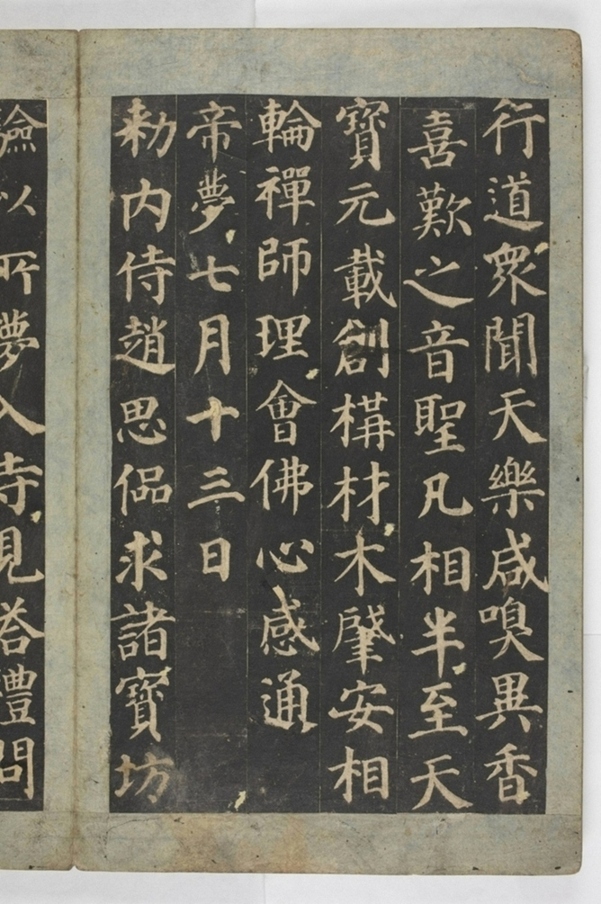 行道衆聞天樂咸嗅異香
喜歎之音聖凡相半至天
寶元載創構材木肇安相
輪禪師理會佛心感通
帝夢七月十三日
勑内侍趙思侃求諸寶坊
驗以所夢入寺見塔禮問